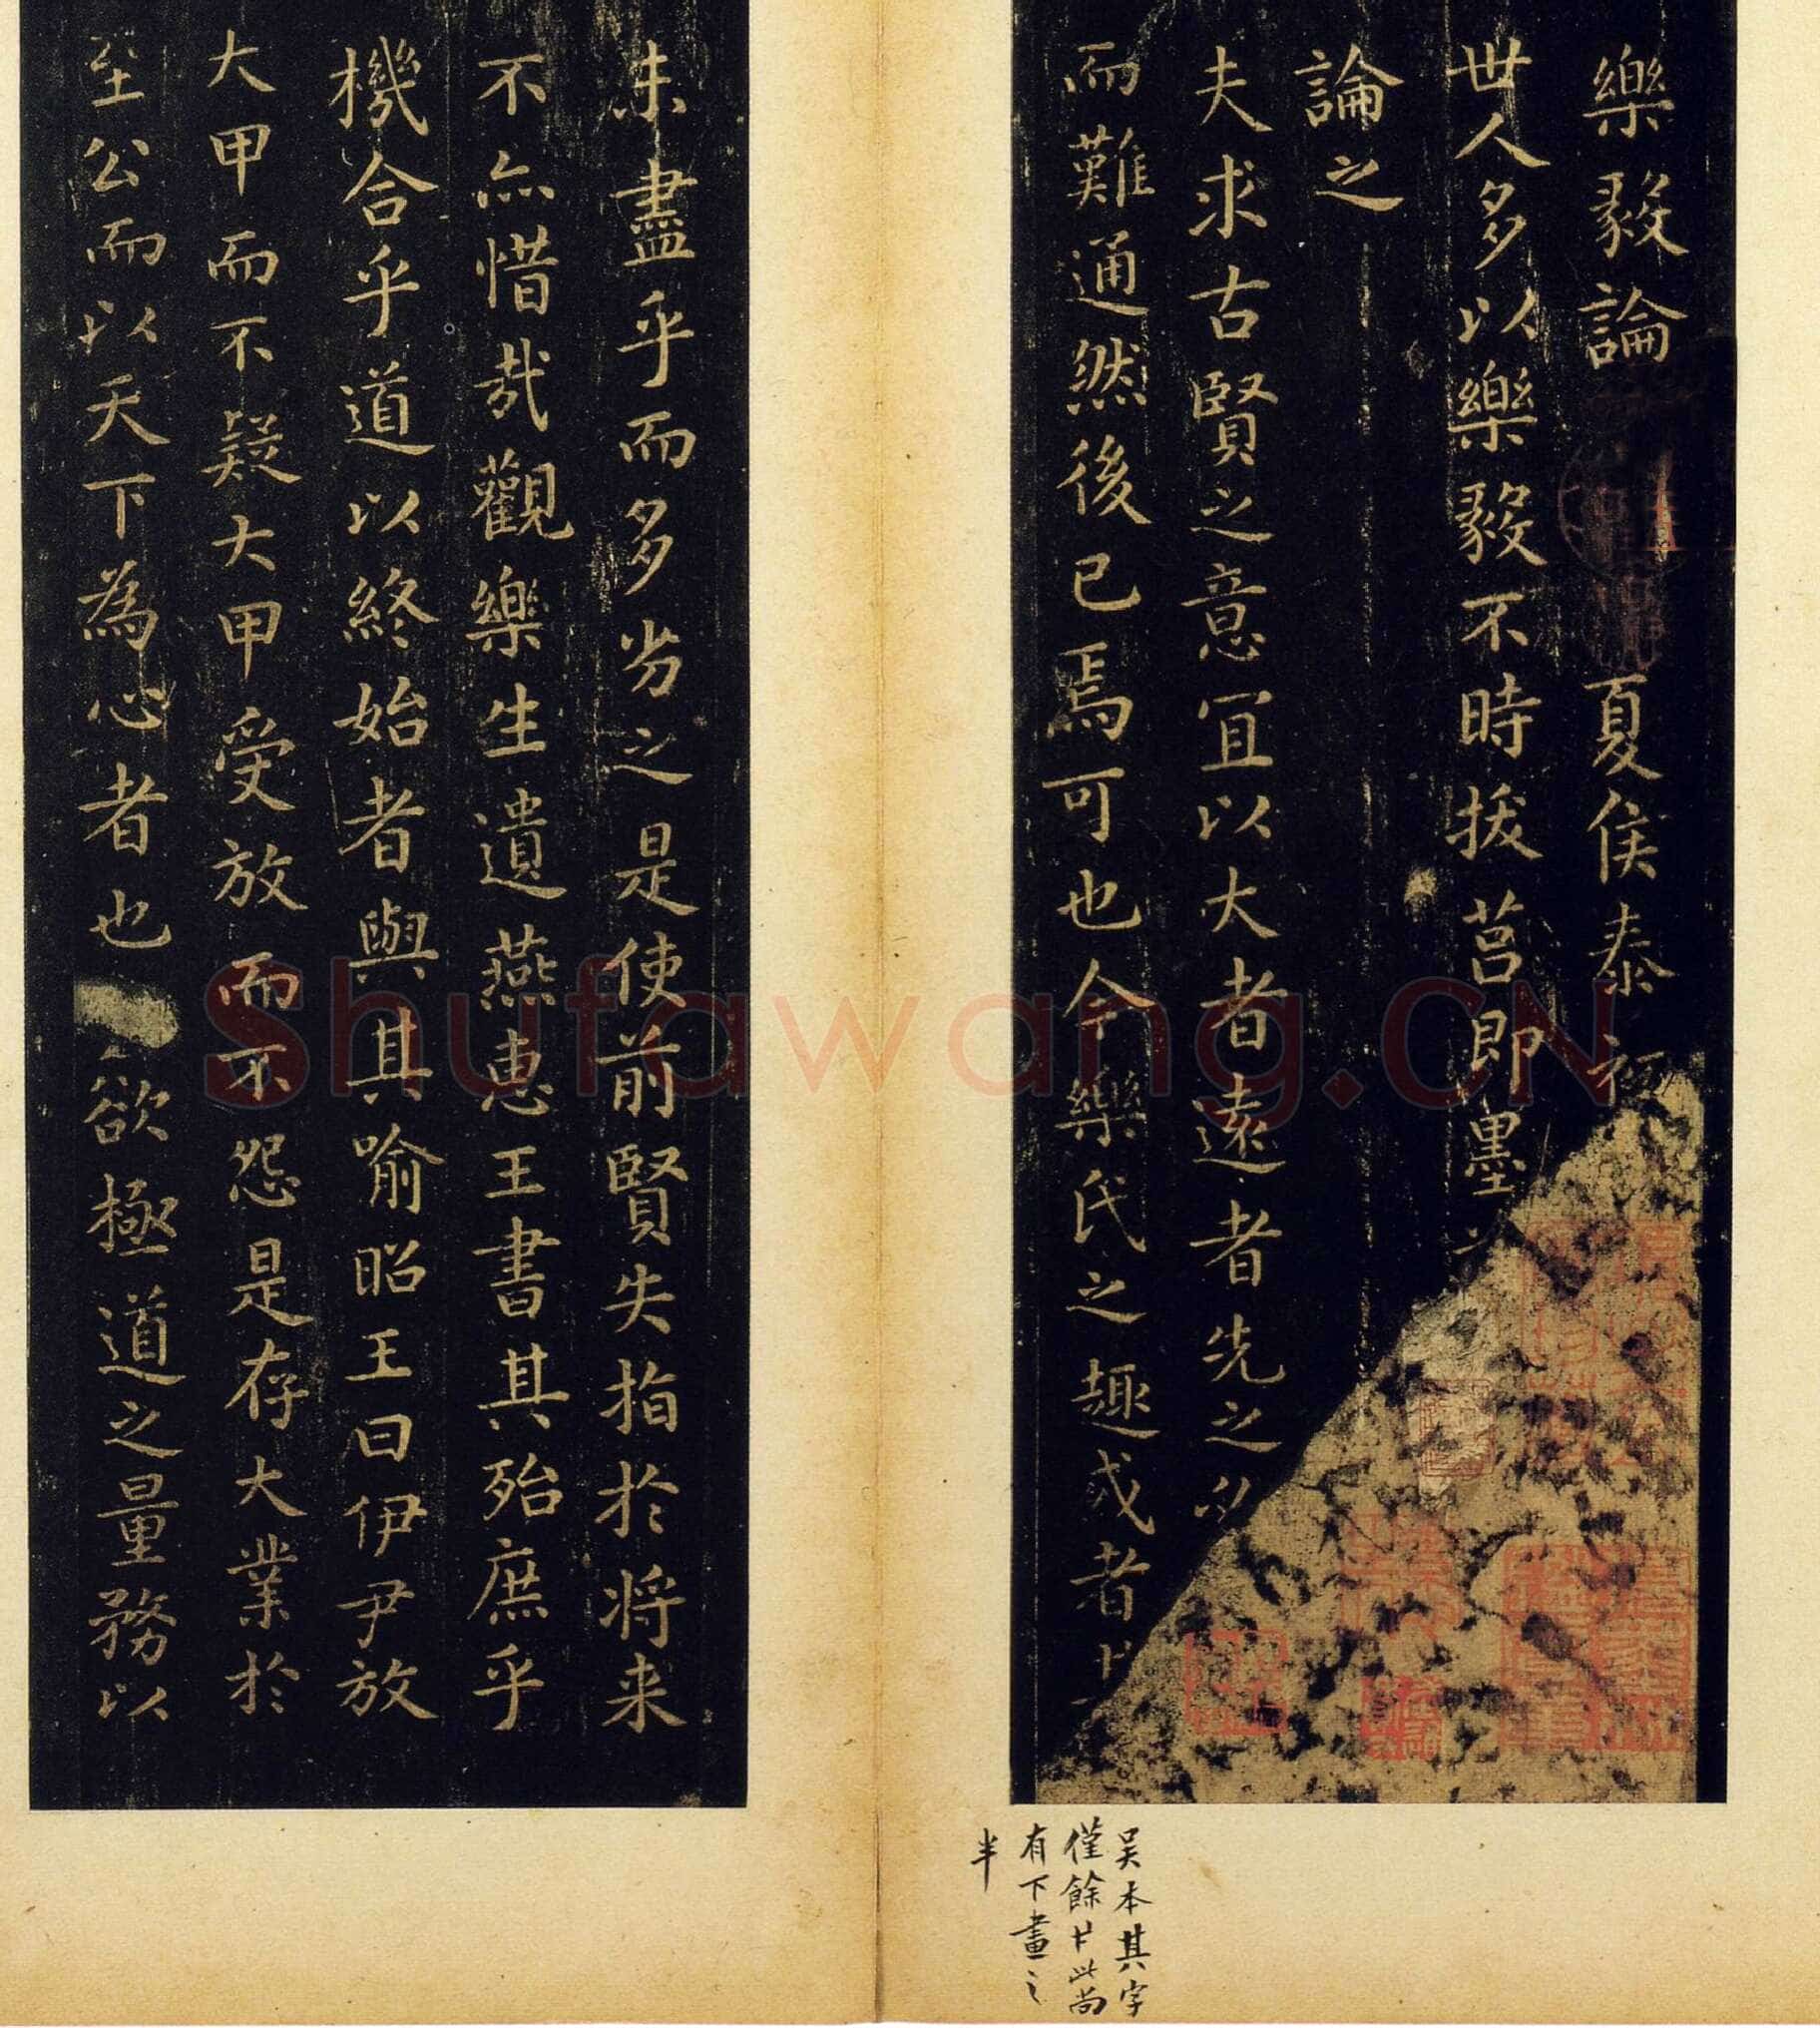 樂毅論 夏侯泰初
世人多以樂毅不時拔莒即墨
論之
夫求古賢之意宜以大者遠者先之以
而難通然後已焉可也今樂氏之趣或者
未盡乎而多劣之是使前賢失指於将来
不亦惜哉觀樂生遺燕惠王書其殆庶乎
機合乎道以終始者與其喻昭王曰伊尹放
大甲而不疑大甲受放而不怨是存大業於
至公而以天下為心者也 欲極道之量務以
吴本其字
僅餘此尚
有下畫之
半
Shufawang.CN